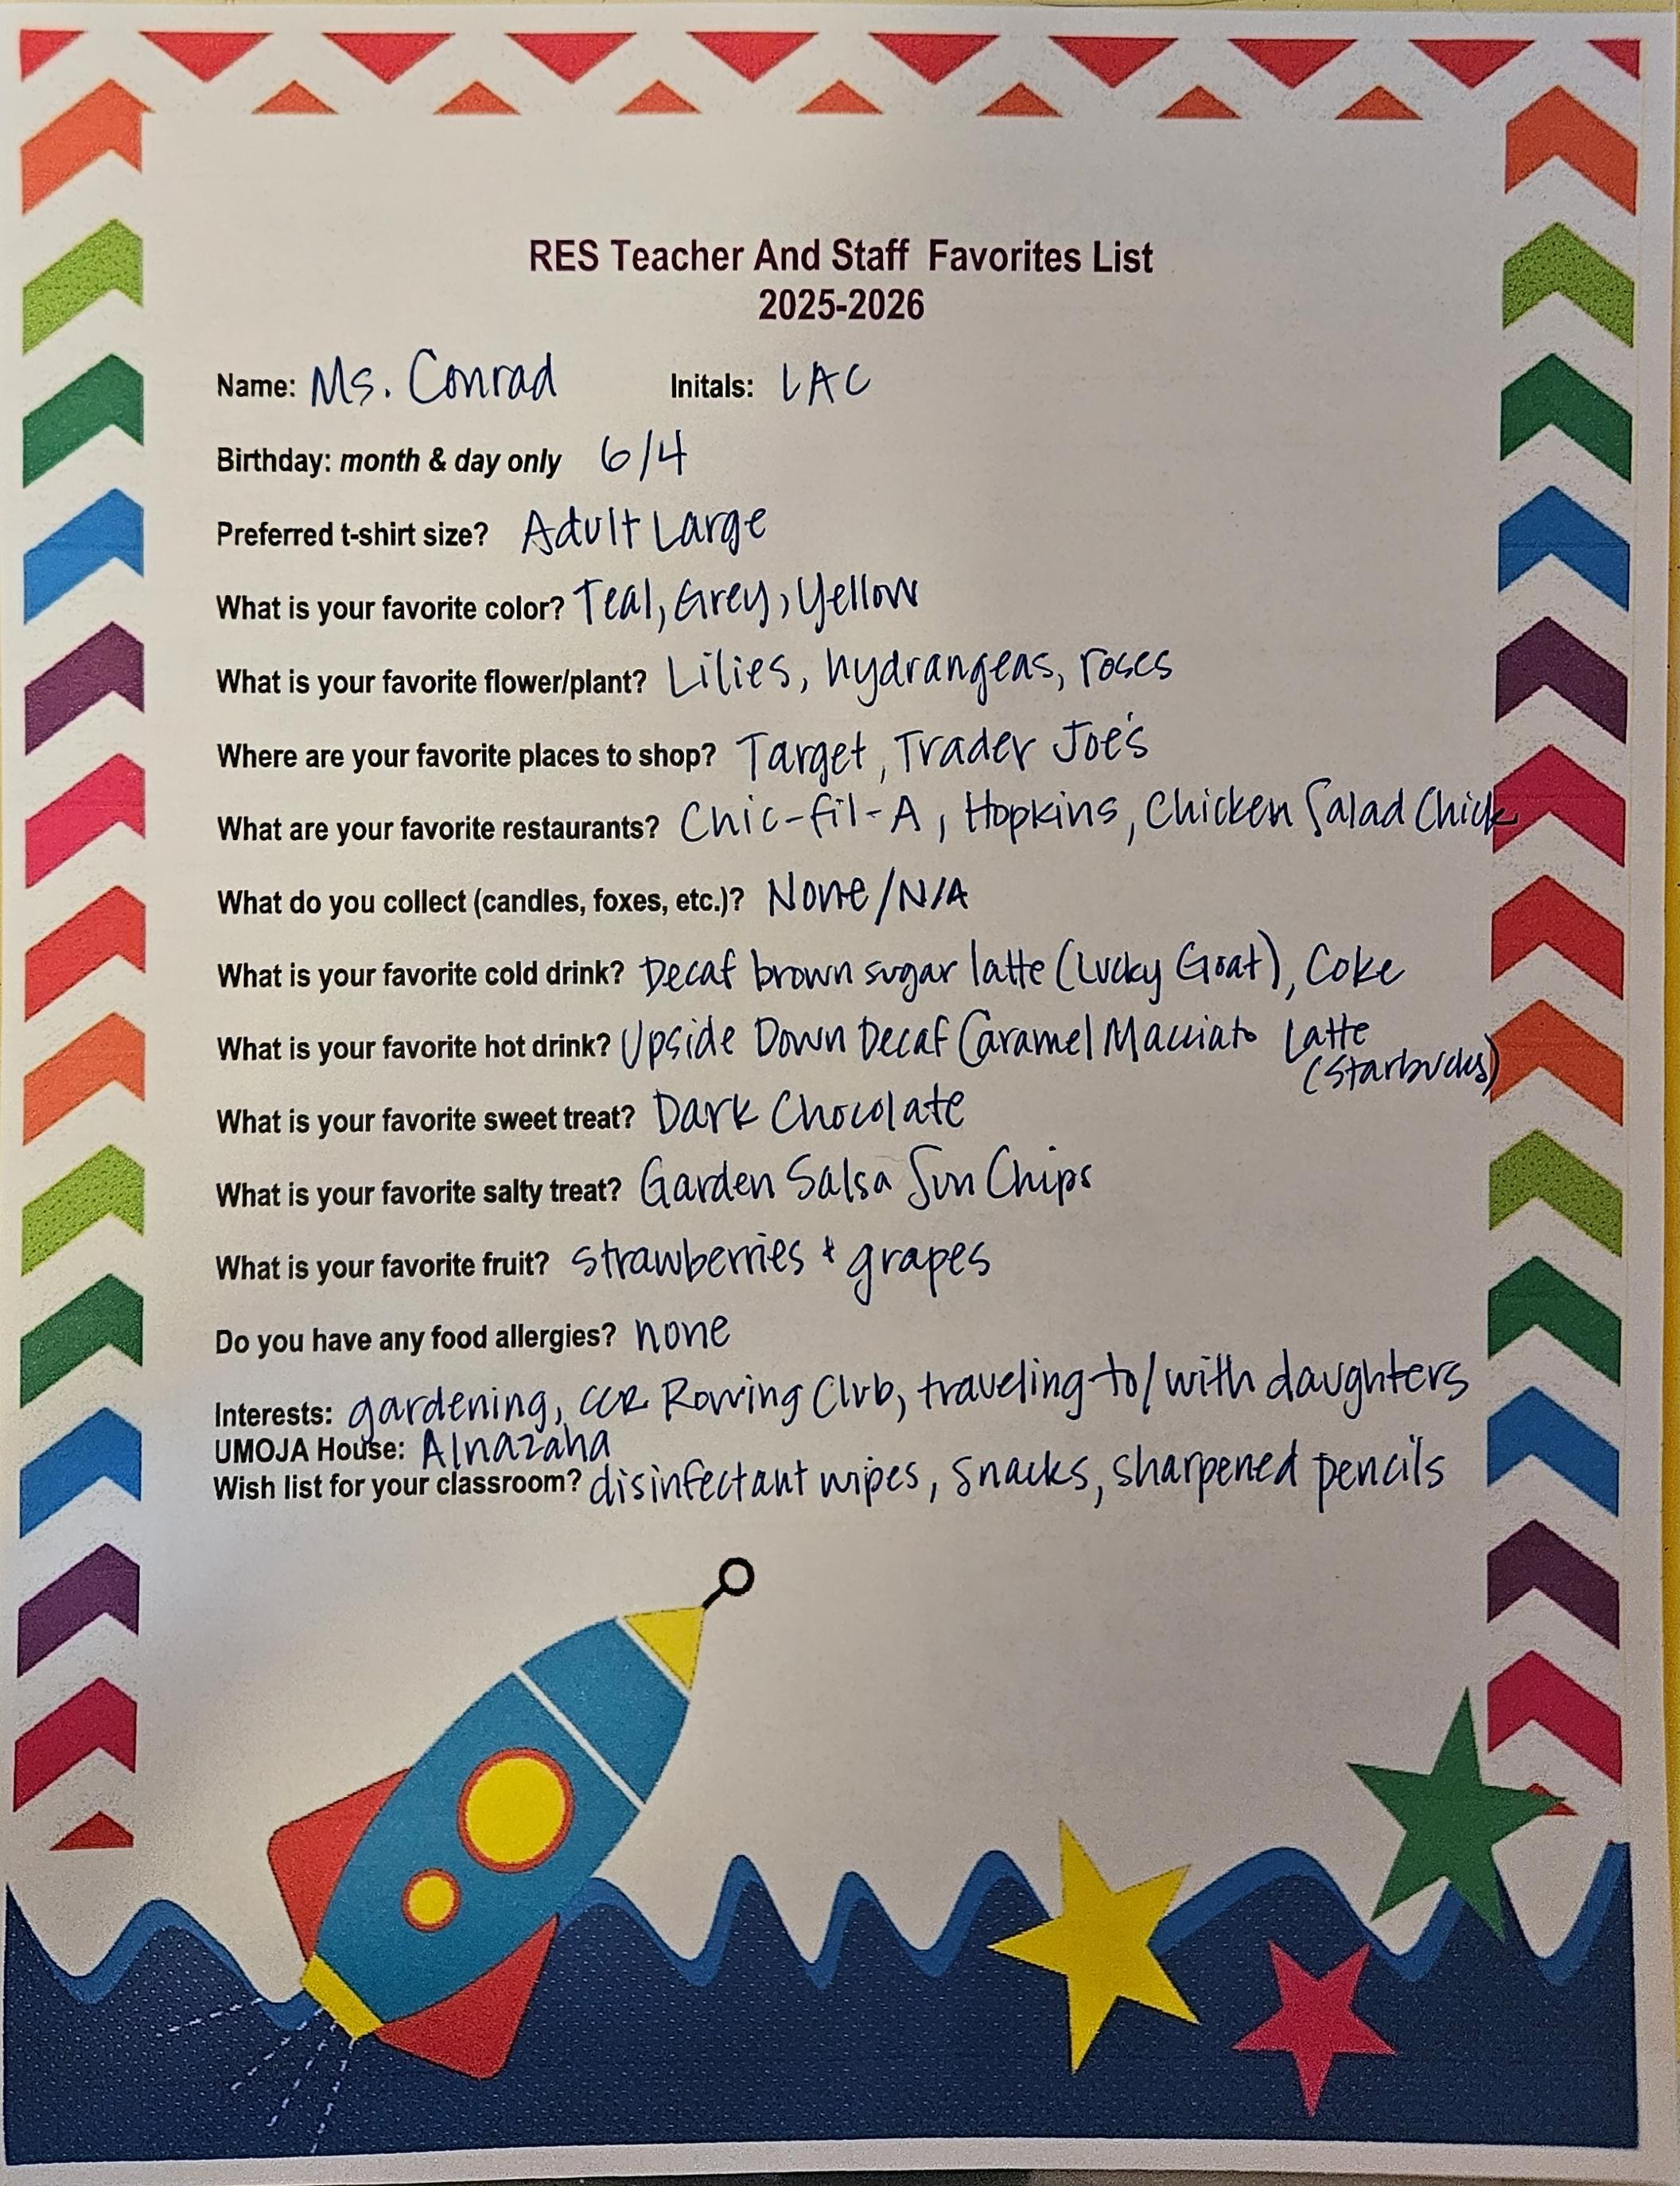 RES Teacher And Staff Favorites List
2025-2026
Name: Ms. Conrad Initals: LAC
Birthday: month & day only 6/4
Preferred t-shirt size? Adult Large
What is your favorite color? Teal, Grey, Yellow
What is your favorite flower/plant? Lilies, hydrangeas, roses
Where are your favorite places to shop? Target, Trader Joe's
What are your favorite restaurants? Chic-fil-A, Hopkins, Chicken Salad Chick
What do you collect (candles, foxes, etc.)? None/N/A
What is your favorite cold drink? Decaf brown sugar latte (Lucky Goat), Coke
What is your favorite hot drink? Upside Down Decaf Caramel Macciato Latte
(Starbucks)
What is your favorite sweet treat? Dark Chocolate
What is your favorite salty treat? Garden Salsa Sun Chips
What is your favorite fruit? strawberries + grapes
Do you have any food allergies? none
Interests: gardening, CCR Rowing Club, traveling to/with daughters
UMOJA House: Alnazaha
Wish list for your classroom? disinfectant wipes, snacks, sharpened pencils